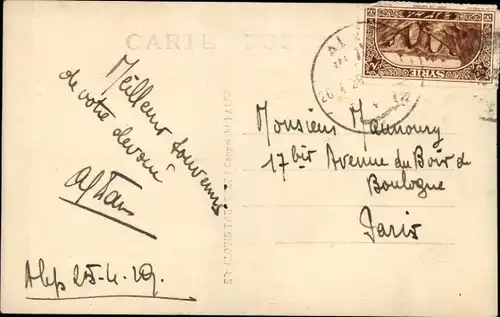 CARTE
SYRIE
Meilleur Souvenir
de votre dévoué
Alep 25-4-29.
Monsieur Mannoury
17 bis Avenue du Bois de
Boulogne
Paris